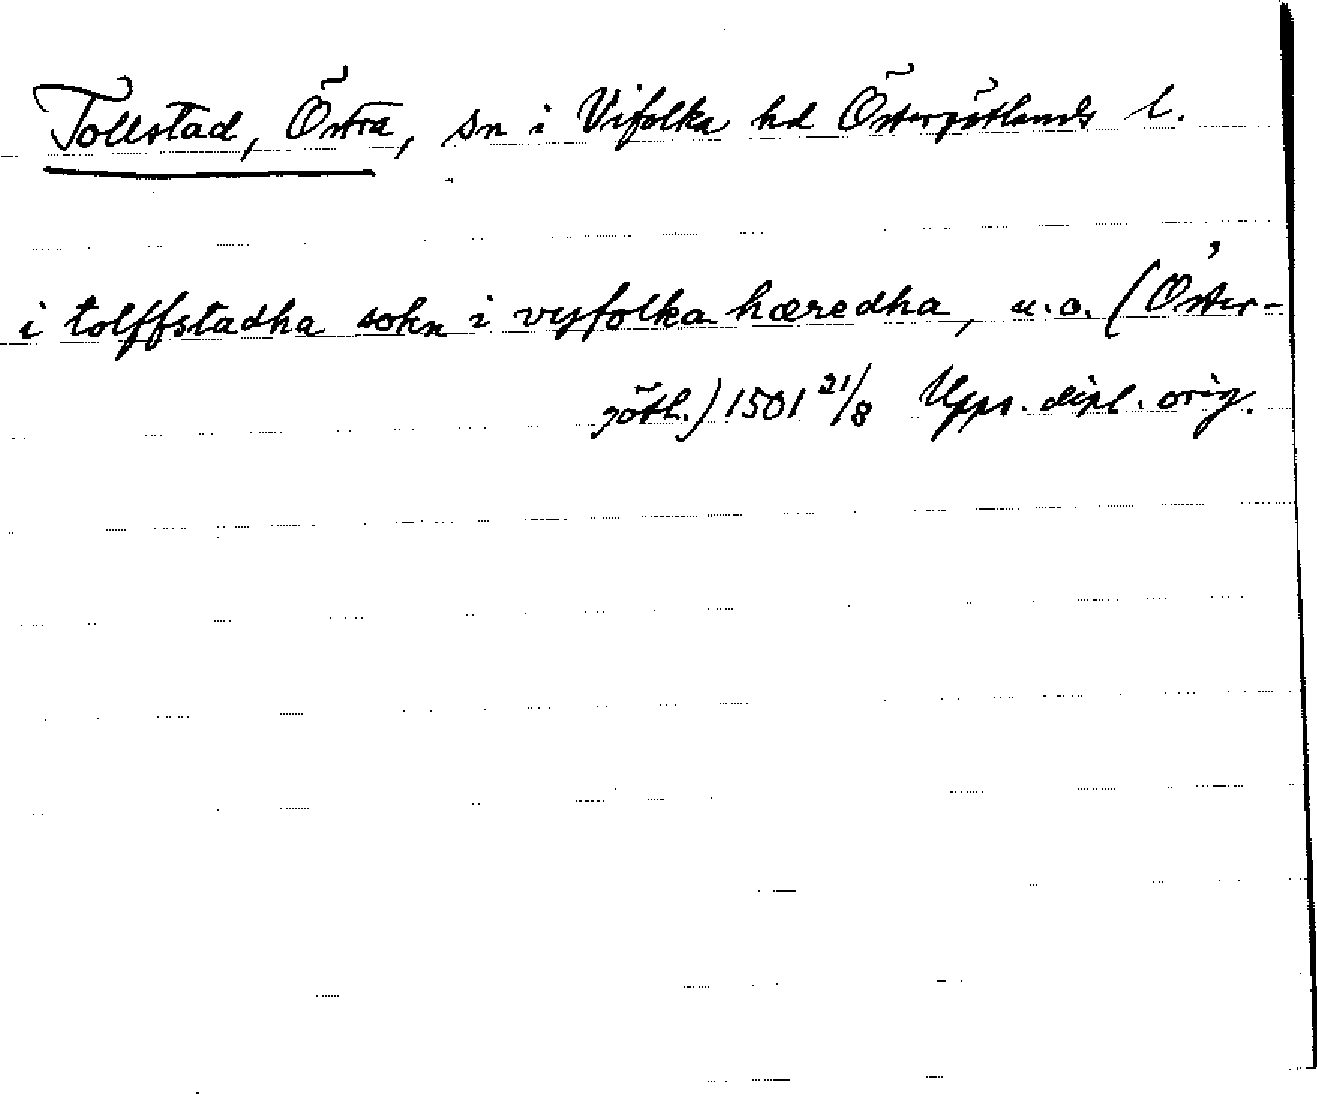 Tollstad, Östra, sn i Vifolka hd Östergötlands l.
i tolffstadha sokn i vyfolka hæredha, u.o. (Öster-
götl.) 1501 21/8 Upps. dipl. orig.